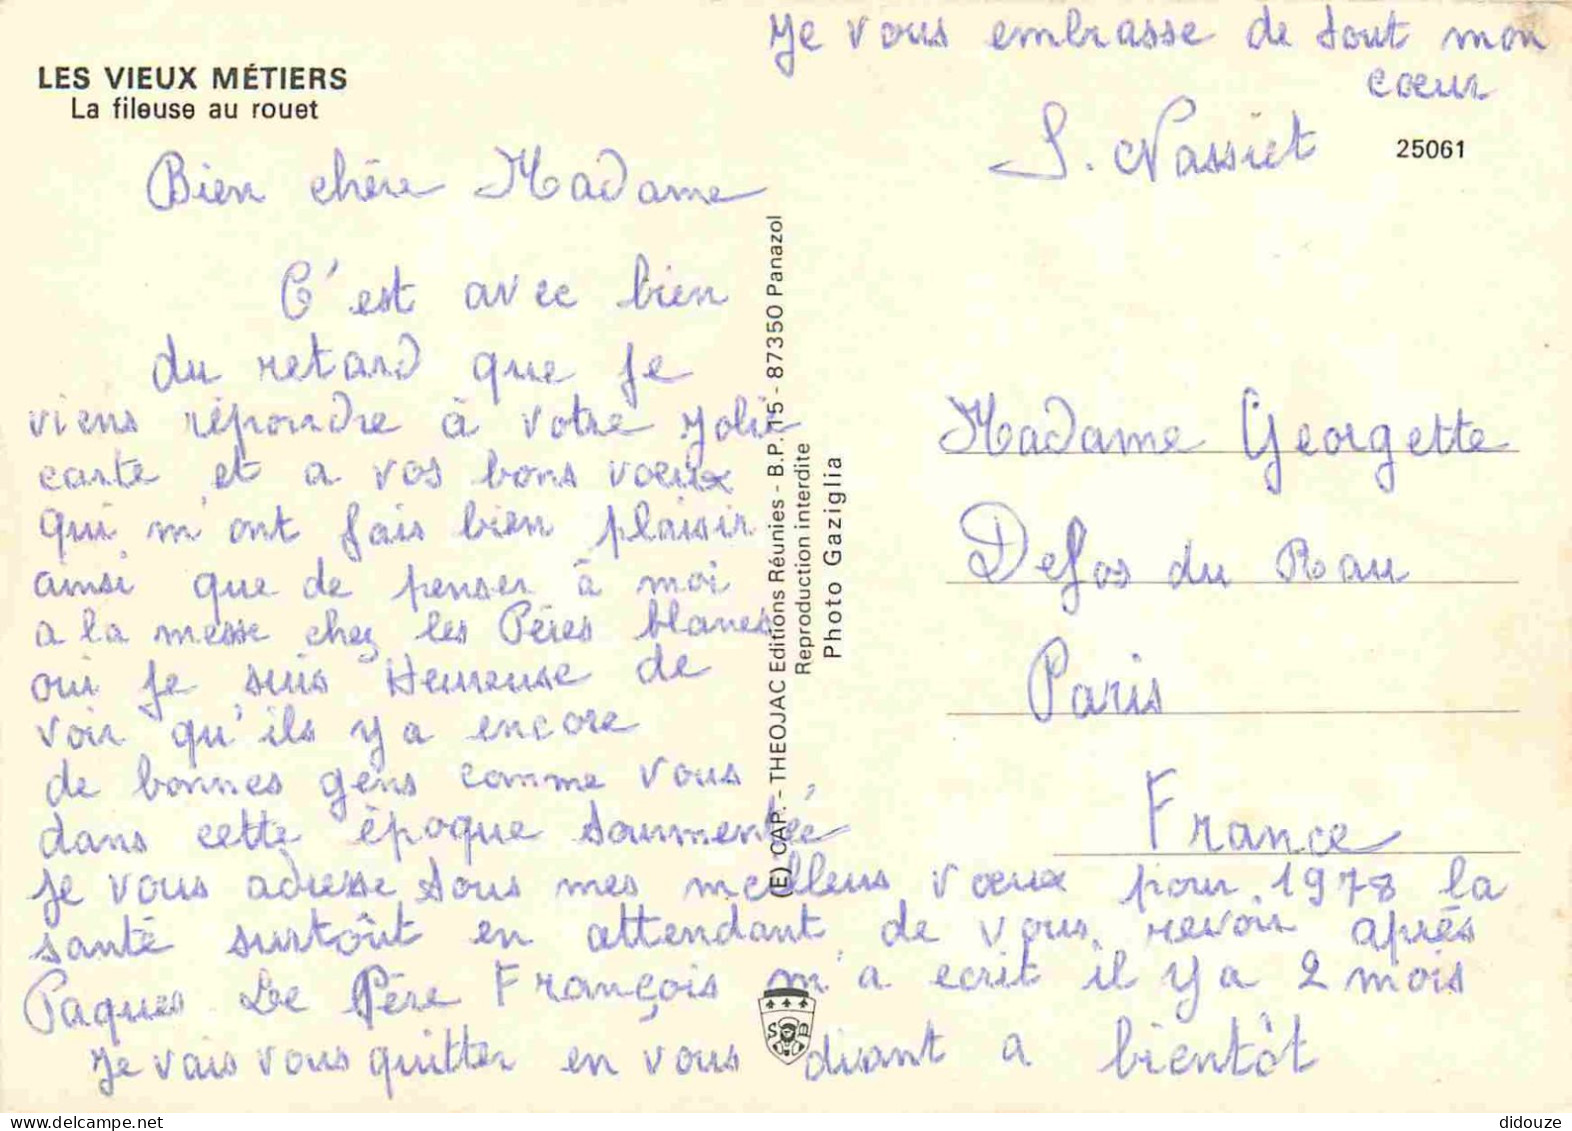 LES VIEUX MÉTIERS
La fileuse au rouet
Bien chère Madame
C'est avec bien
du retard que je
viens répondre à votre jolie
carte et a vos bons vœux
qui m'ont fais bien plaisir
ainsi que de penser à moi
a la messe chez les Pères blancs
oui je suis Heureuse de
voir qu'ils y a encore
de bonnes gens comme vous
dans cette époque tourmentée
je vous adresse tous mes meilleurs vœux pour 1978 la
santé surtoût en attendant de vous revoir après
Paques Le Père François m'a ecrit il y a 2 mois
Je vais vous quitter en vous disant a bientôt
Je vous embrasse de tout mon
coeur
S. Nassiet
25061
(E) CAP. - THEOJAC Editions Réunies - B.P. 15 - 87350 Panazol
Reproduction interdite
Photo Gaziglia
Madame Georgette
Defos du Rau
Paris
France
didouze